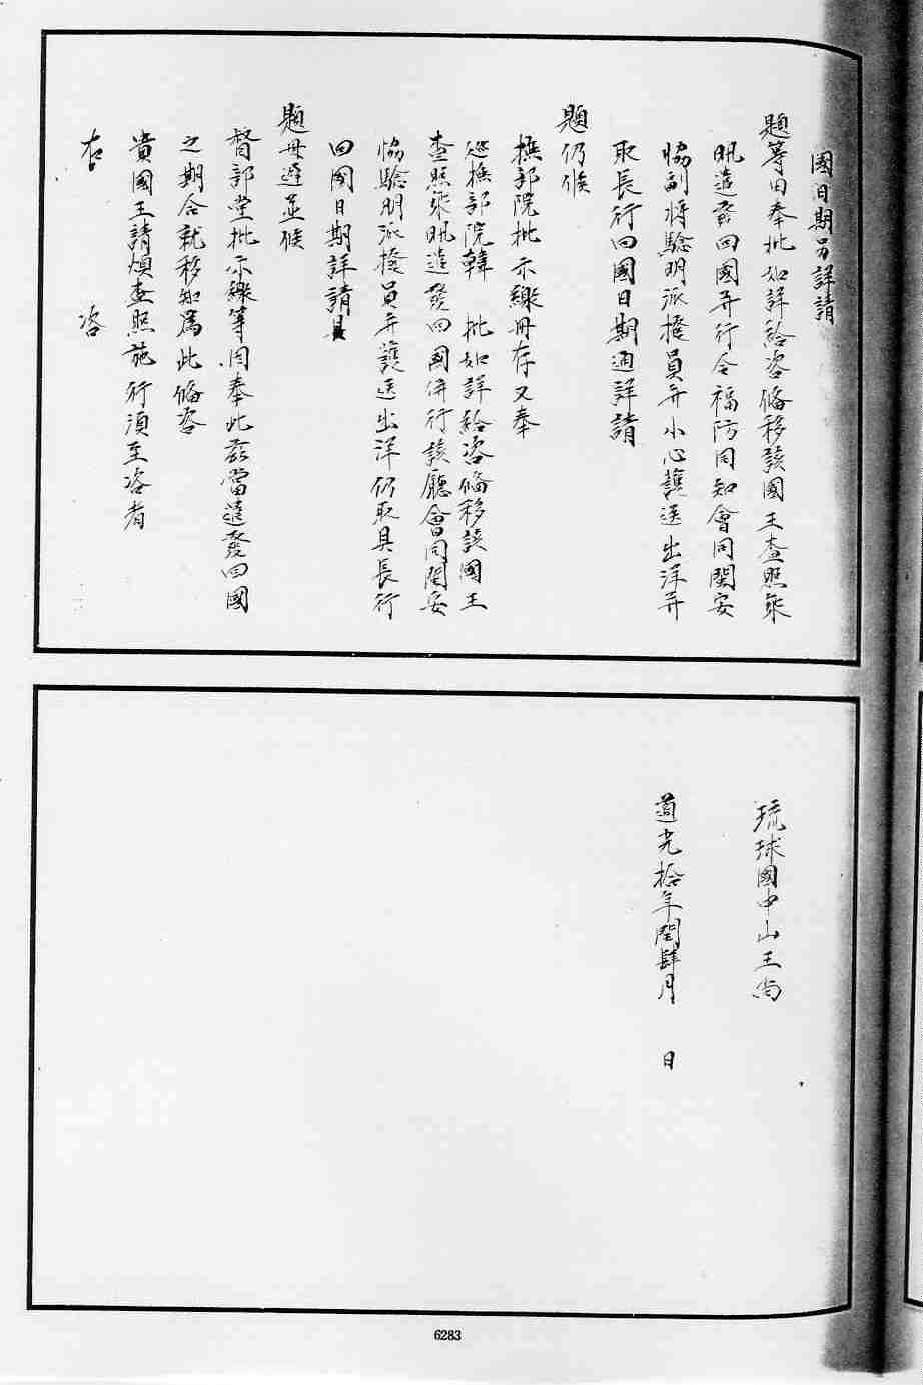 國日期另詳請
題等由奉批如詳給咨備移該國王查照乘
汛遣發回國并行令福防同知會同閩安
協副將驗明派撥員弁小心護送出洋并
取長行回國日期通詳請
題仍候
撫部院批示繳冊存又奉
巡撫部院韓 批如詳給咨備移該國王
查照乘汛遣發回國併行該廳會同閩安
協驗明派撥員弁護送出洋仍取具長行
回國日期詳請具
題毋違並候
督部堂批示繳等因奉此茲當遣發回國
之期合就移知爲此備咨
貴國王請煩查照施行須至咨者
右 咨
琉球國中山王尚
道光拾年閏肆月 日
6283